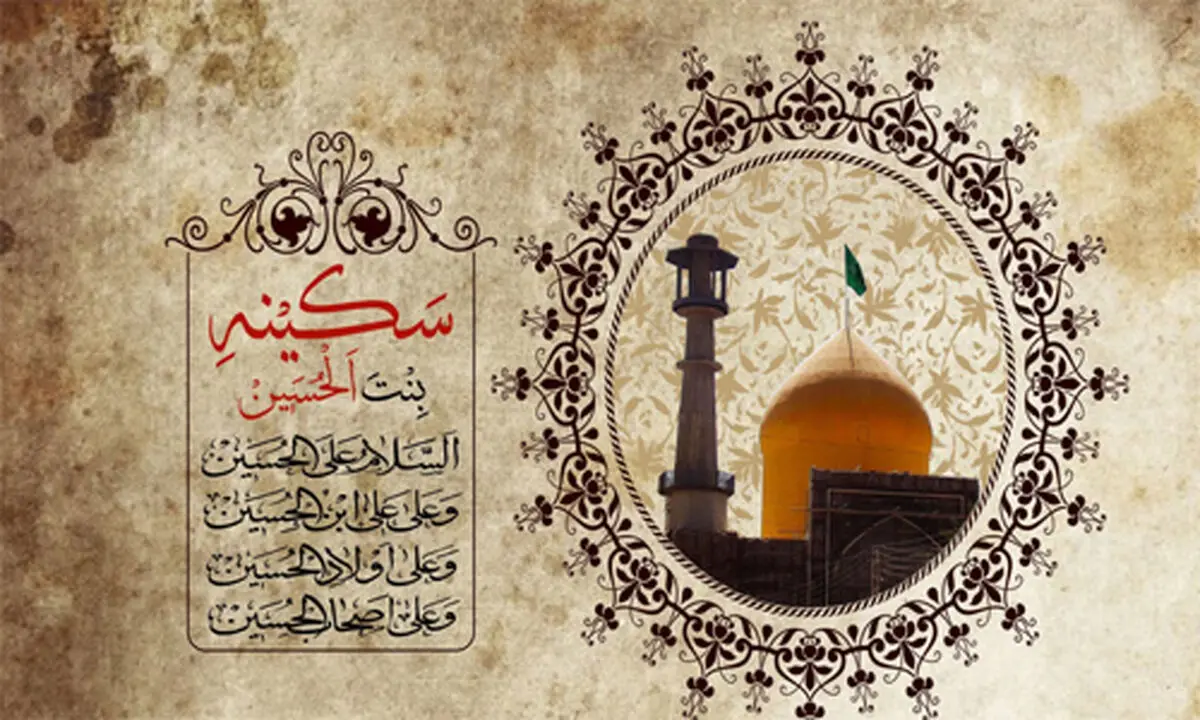 سَكیْنهِ
بِنْتَ اَلْحُسَیِنْ
اَلسَّلامُ عَلَی الحُسَیِنْ
وَ عَلی عَلی ابْنِ الحُسَیِنْ
وَ عَلی اَوْلادِ الحُسَیِنْ
وَ عَلی اَصحابِ الحُسَیِنْ